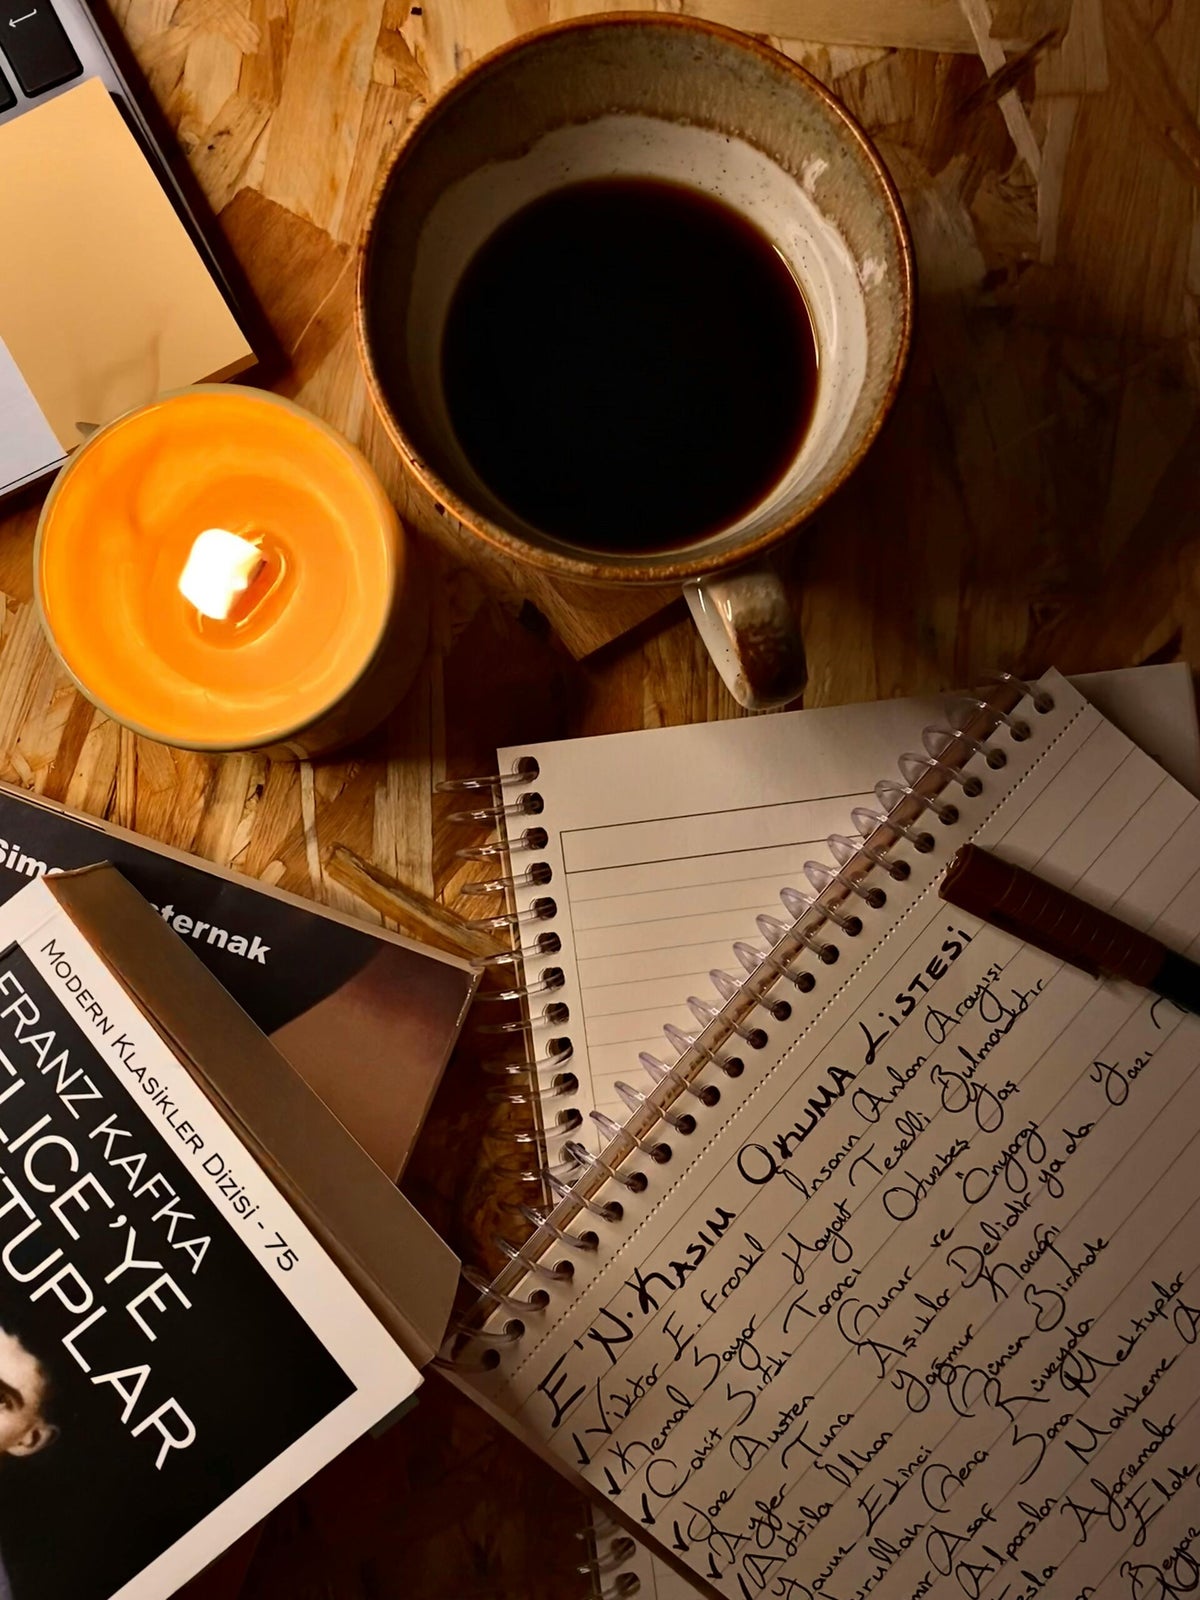 ternak
MODERN KLASİKLER DİZİSİ - 75
FRANZ KAFKA
ELICE'YE
KTUPLAR
E'N. KASIM OKUMA LİSTESİ
✓ Viktor E. Frankl İnsanın Anlam Arayışı
✓ Kemal Sayar Hayat Teselli Bulmaktır
✓ Cahit Sıtkı Tarancı Otuzbeş Yaş
✓ Jane Austen Gurur ve Önyargı
✓ Ayfer Tunç Aşıklar Delidir ya da Yazı
✓ Attila İlhan Yağmur Kaçağı
Yavuz Ekinci Günün Birinde
urullah Genç Rüveyda
Asaf Sana Mektuplar
Alparslan Mahkeme A
esla Aforizmalar
Elde
Beyaz